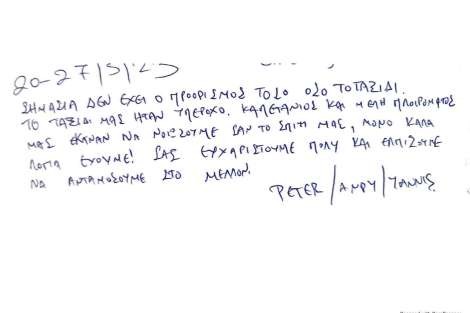 20-27/5/23
ΣΗΜΑΣΙΑ ΔΕΝ ΕΧΕΙ Ο ΠΡΟΟΡΙΣΜΟΣ ΤΟΣΟ ΟΣΟ ΤΟ ΤΑΞΙΔΙ.
ΤΟ ΤΑΞΙΔΙ ΜΑΣ ΗΤΑΝ ΥΠΕΡΟΧΟ. ΚΑΠΕΤΑΝΙΟΣ ΚΑΙ ΜΕΛΗ ΠΛΟΙΡΩΜΑΤΟΣ
ΜΑΣ ΕΚΑΝΑΝ ΝΑ ΝΟΙΞΟΥΜΕ ΣΑΝ ΤΟ ΣΠΙΤΙ ΜΑΣ, ΜΟΝΟ ΚΑΛΑ
ΛΟΓΙΑ ΕΧΟΥΜΕ! ΣΑΣ ΕΥΧΑΡΙΣΤΟΥΜΕ ΠΟΛΥ ΚΑΙ ΕΛΠΙΖΟΥΜΕ
ΝΑ ΑΝΤΑΜΩΣΟΥΜΕ ΣΤΟ ΜΕΛΛΟΝ!
PETER/ΑΝΡΥ/ΓΙΑΝΝΗΣ